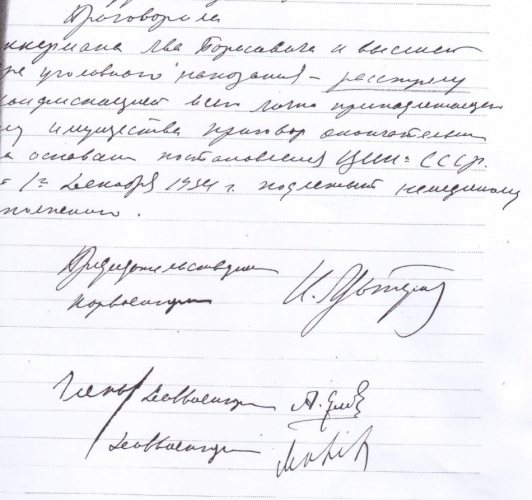 Приговорила
ккермана Льва Борисовича к высшей
ре уголовного наказания – расстрелу
конфискацией всего лично принадлежащего
му имущества приговор окончательный
а основании постановления ЦИК СССР
1го декабря 1934 г. подлежит немедленному
полнению.
Председательствующий
Корвоенюрист
Члены Диввоенюрист
Диввоенюрист